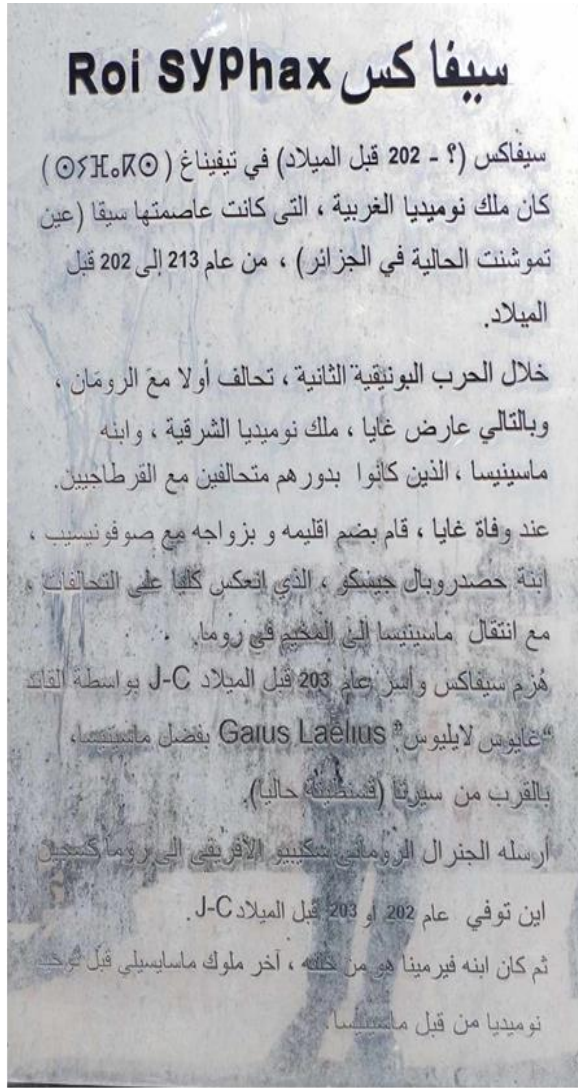 سيفاكس Roi Syphax
سيفاكس (؟ - 202 قبل الميلاد) في تيفيناغ (ⵙⵢⴼⴰⴽⵙ)
كان ملك نوميديا الغربية ، التى كانت عاصمتها سيقا (عين
تموشنت الحالية في الجزائر) ، من عام 213 إلى 202 قبل
الميلاد.
خلال الحرب البونيقية الثانية ، تحالف أولا مع الرومَان ،
وبالتالي عارض غايا ، ملك نوميديا الشرقية ، وابنه
ماسينيسا ، الذين كانوا بدورهم متحالفين مع القرطاجيين.
عند وفاة غايا ، قام بضم اقليمه و بزواجه مع صوفونيسيب ،
ابنة حصدروبال جيسكو ، الذي انعكس كليا على التحالفات ،
مع انتقال ماسينيسا الى المخيم في روما.
هُزم سيفاكس وأسر عام 203 قبل الميلاد J-C بواسطة القائد
"غايوس لايليوس" Gaius Laelius بفضل ماسينيسا،
بالقرب من سيرتا (قسنطينة حاليا).
أرسله الجنرال الروماني سكيبيو الأفريقي الى روما كسجين
اين توفي عام 202 او 203 قبل الميلاد J-C.
ثم كان ابنه فيرمينا هو من خلفه ، آخر ملوك ماسايسيلي قبل توحيد
نوميديا من قبل ماسينيسا.